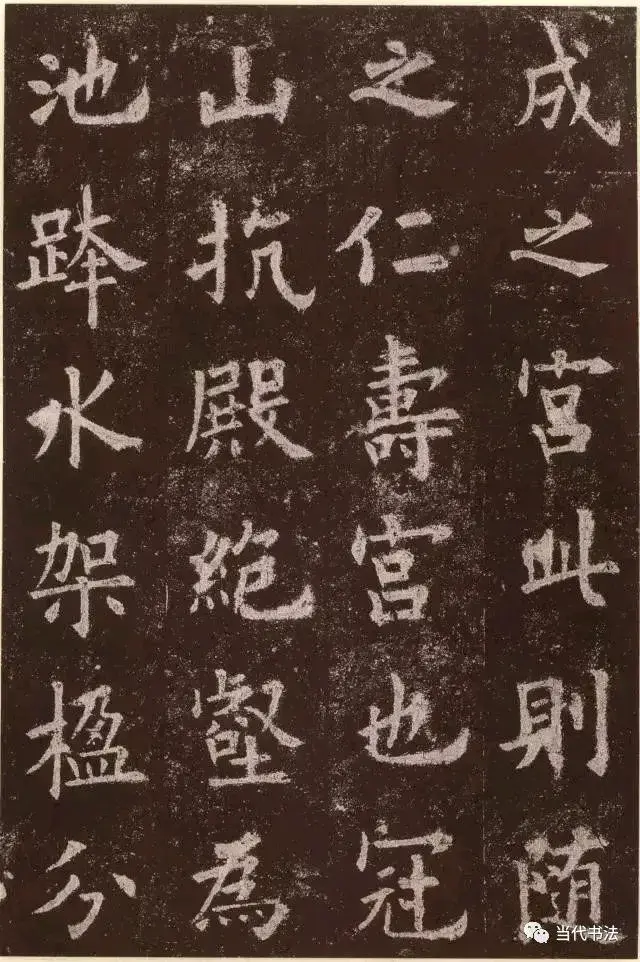 成之宮此則隨
之仁壽宮也冠
山抗殿絕壑為
池跨水架楹分
当代书法